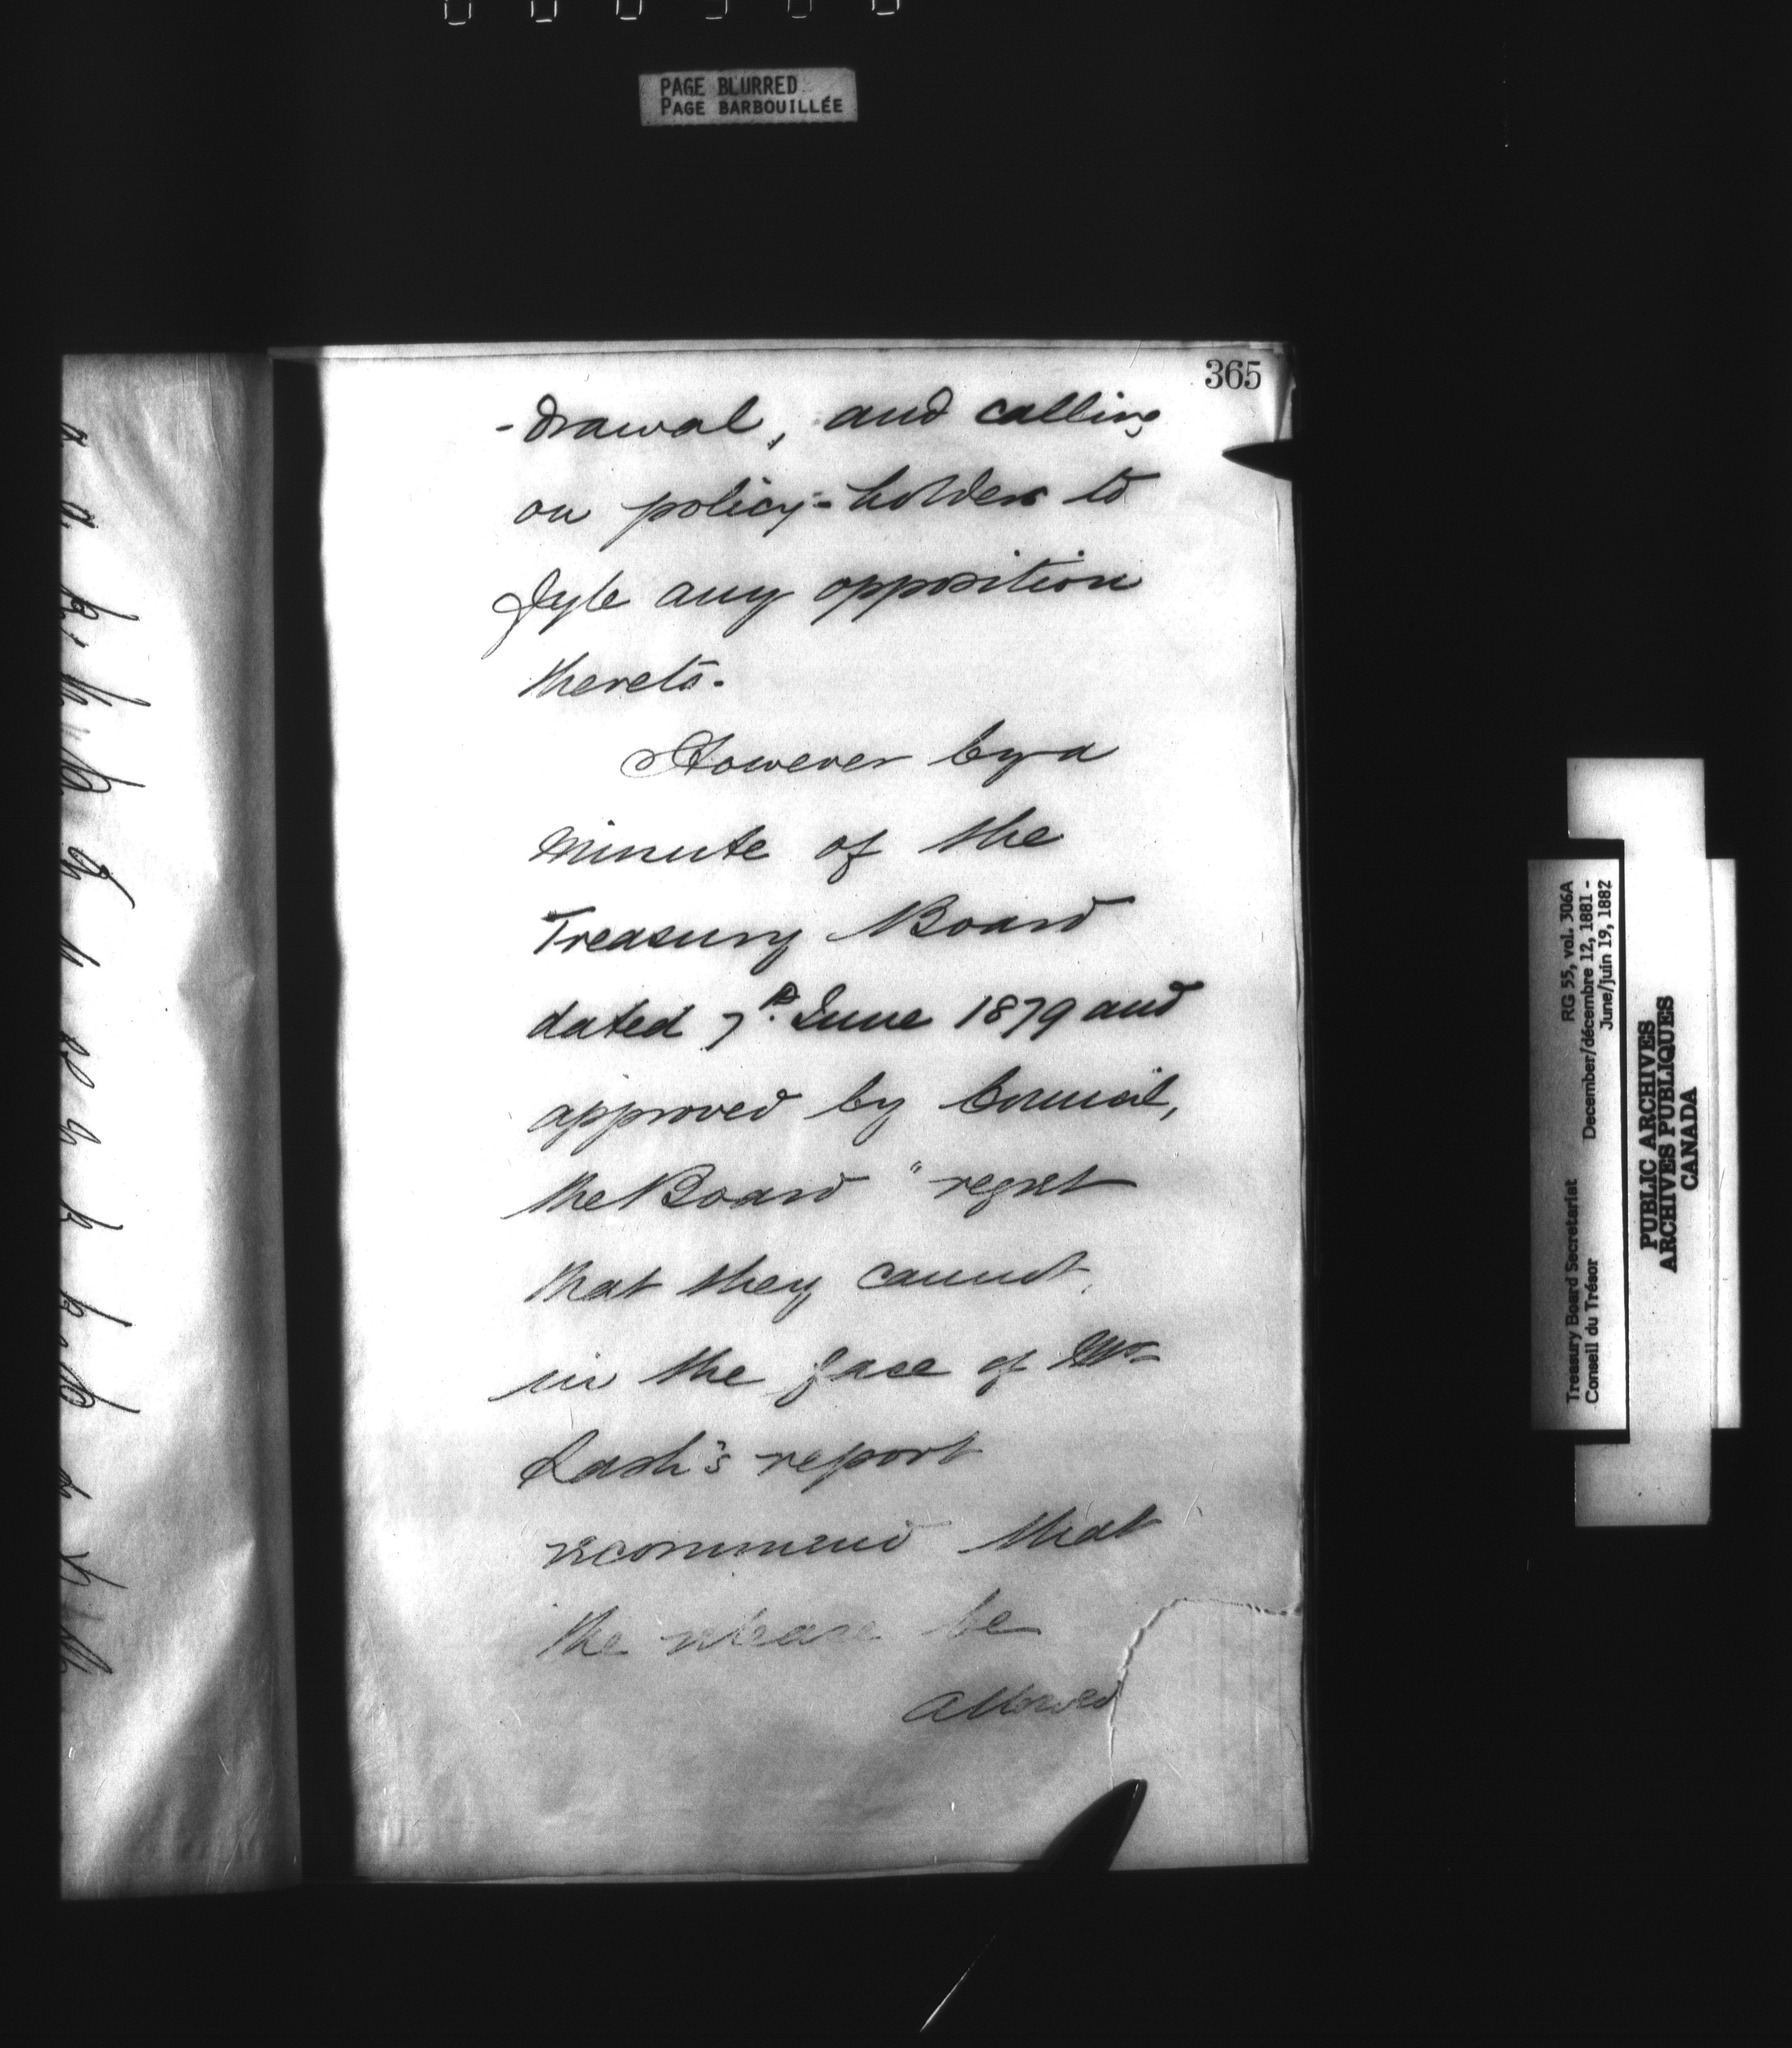 PAGE BLURRED
PAGE BARBOUILLÉE
365
-drawal, and calling
on policy-holders to
fyle any opposition
thereto.
However by a
minute of the
Treasury Board
dated 7th. June 1879 and
approved by Council,
the Board "regret
that they cannot,
in the face of Mr
Lash's report
recommend that
the release be
allowed
Treasury Board Secretariat RG 55, vol. 306A
Conseil du Trésor December/décembre 12, 1881 -
June/juin 19, 1882
PUBLIC ARCHIVES
ARCHIVES PUBLIQUES
CANADA